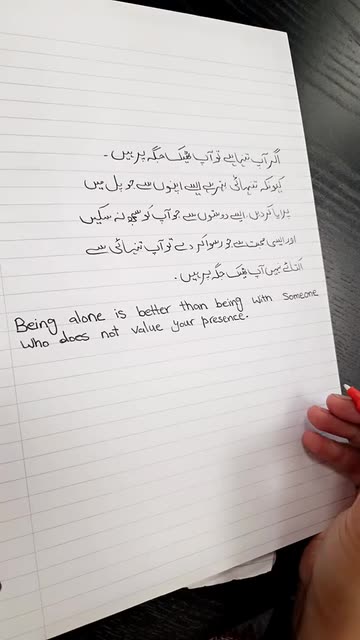 اگر آپ تنہا ہے تو آپ ٹھیک جگہ پر ہیں۔
کیونکہ تنہائی بہتر ہے ایسے اپنوں سے جو پل میں
پرایا کر دیں، ایسے دوستوں سے جو آپ کو سمجھ نہ سکیں
اور ایسی محبت سے جو رسوا کر دے تو آپ تنہائی سے
اکتائے نہیں آپ ٹھیک جگہ پر ہیں۔
Being alone is better than being with someone
who does not value your presence.